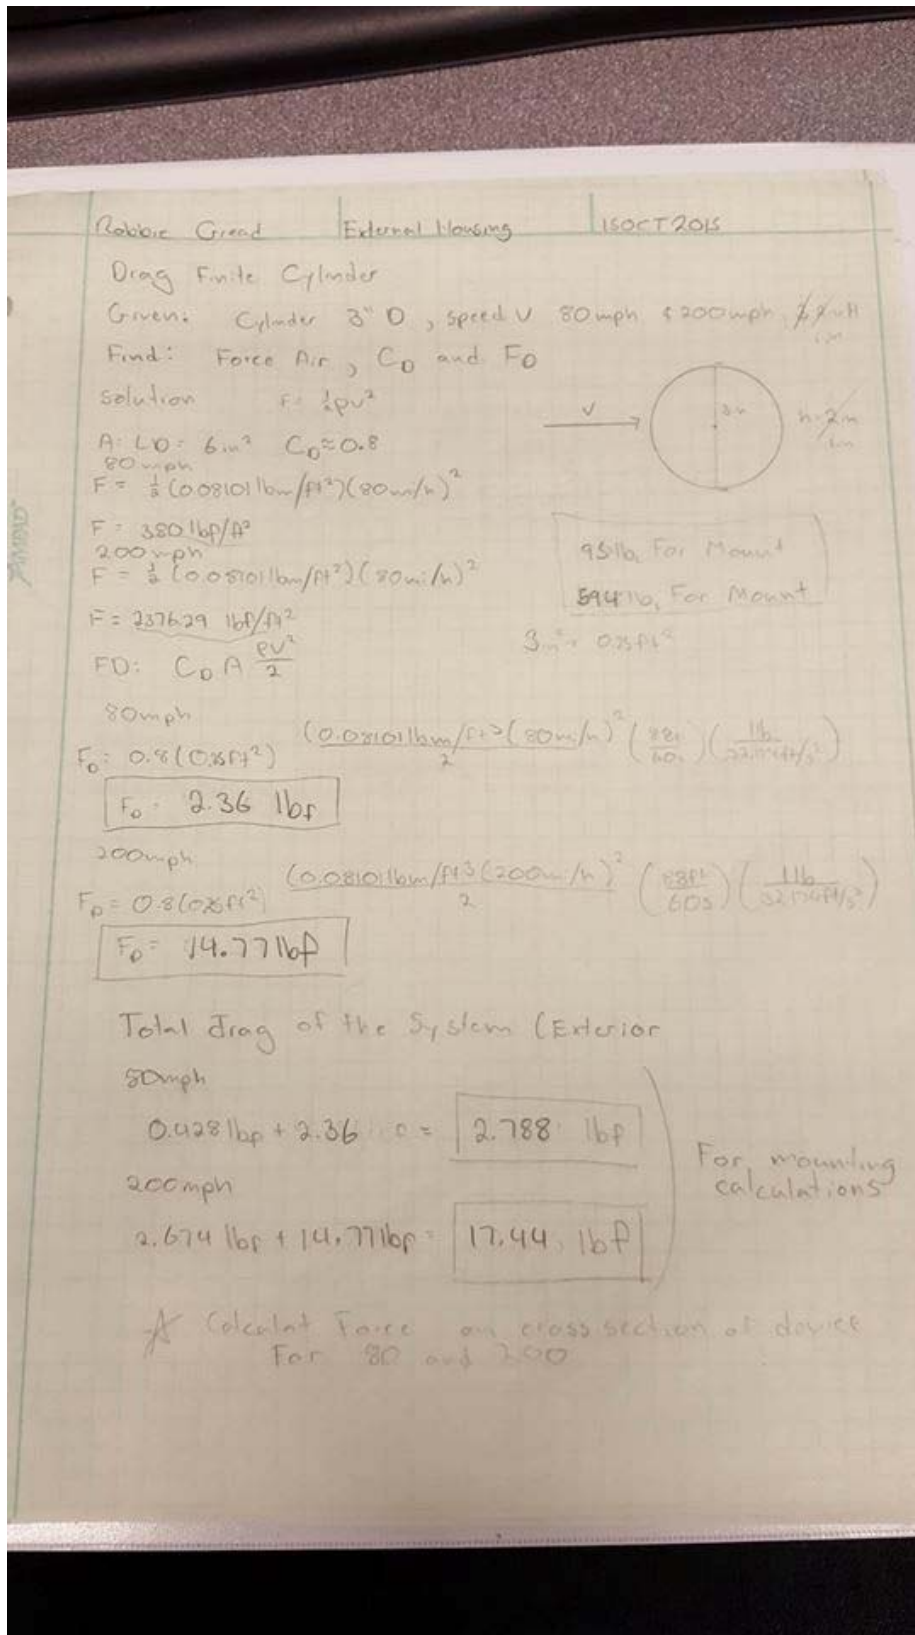 Robbie Gread External Housing 15OCT2015
Drag Finite Cylinder
Given: Cylinder 3" D, speed V 80mph & 200mph
Find: Force Air, CD and FD
solution F = ½ρv²
V
3in
A: LD: 6in² CD≈0.8
80mph
F = ½ (0.08101 lbm/ft³)(80mi/h)²
F = 380 lbf/ft²
200mph
F = ½ (0.08101 lbm/ft³)(80mi/h)²
F = 2376.29 lbf/ft²
95 lb, For Mount
594 lb, For Mount
FD: CD A ρV²/2
80mph
FD: 0.8(0.25ft²) (0.08101 lbm/ft³(80m/h)²/2 (88ft/60s) (1lb/32.174ft/s²)
FD = 2.36 lbf
200mph
FD = 0.8(0.25ft²) (0.08101 lbm/ft3(200m/h)²/2 (88ft/60s) (1lb/32.174ft/s²)
FD = 14.77 lbf
Total drag of the System (Exterior
80mph
0.428 lbf + 2.36 = 2.788 lbf
200mph
2.674 lbf + 14.77 lbf = 17.44 lbf
For mounting
calculations
Calculat Force on cross section of device
For 80 and 200